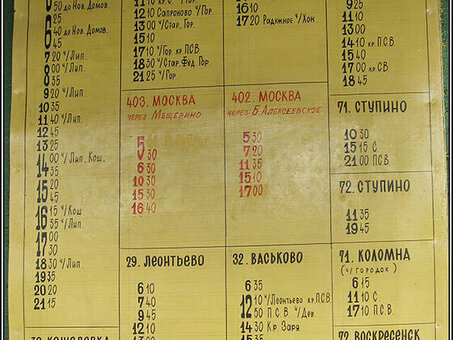 50 до Нов. Домов.
45
40 до Нов. Домов
45
7 20 ч/Лип
8 00 ч/Лип
9 35
9 20
10 35
11 40 ч/Лип
12 45
13 25
14 00 ч/Лип, Кош.
15 20
15 45
16 15 ч/Кош
16 35 ч/Лип
17 00
17 30
18 30 ч/Лип
19 35
20 20
21 15
12 10 Сапроново ч/Гор.
13 00 ч/Стар. Гор.
15 10
17 10 ч/Гор кр П.СВ.
18 30 ч/Стар. Фед. Гор
21 25 ч/Гор
16 10
17 20 Радужное ч/Хон
9 25
11 10
12 35
14 10 кр П.С.В.
15 35
16 20 кр. СВ
18 45
403. МОСКВА
через Мещерино
5 30
6 30
10 30
15 30
16 40
402. МОСКВА
через Б. Алексеевское
5 30
7 20
11 35
15 10
17 00
71. СТУПИНО
10 30
15 15 С
21 00 П.С.В
72. СТУПИНО
11 35
19 45
29. ЛЕОНТЬЕВО
6 10
7 40
9 45
12 10
13 00
32. ВАСЬКОВО
6 35
12 10 ч/Леонтьево кр П.С.В
12 50 П.С.В. ч/Дев
14 30 Кр. Заря
71. КОЛОМНА
(ч/ Городок)
6 15
11 10 С
17 10 П.С.В.
72. ВОСКРЕСЕНСК